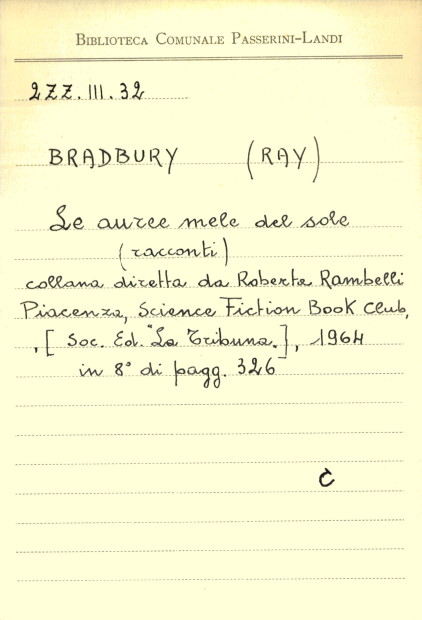 BIBLIOTECA COMUNALE PASSERINI-LANDI
2ZZ.III.32
BRADBURY (RAY)
Le auree mele del sole
(racconti)
collana diretta da Roberta Rambelli
Piacenza, Science Fiction Book Club,
,[ Soc. Ed. "La Tribuna"], 1964
in 8° di pagg. 326
C